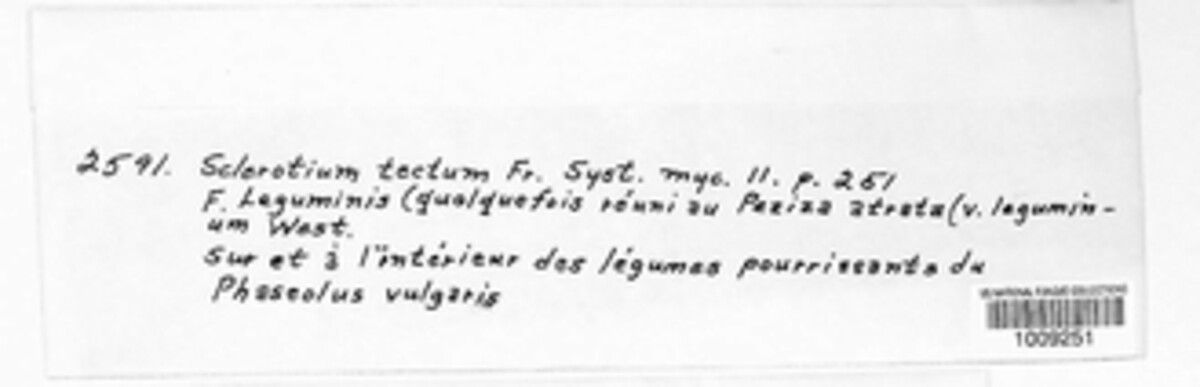 2591. Sclerotium tectum Fr. Syst. myc. II. p. 251
F. Leguminis (quelquefois réuni au Peziza atrata (v. legumin-
um West.
Sur et à l'intérieur des légumes pourrissants du
Phaseolus vulgaris
US NATIONAL FUNGUS COLLECTIONS
1009251